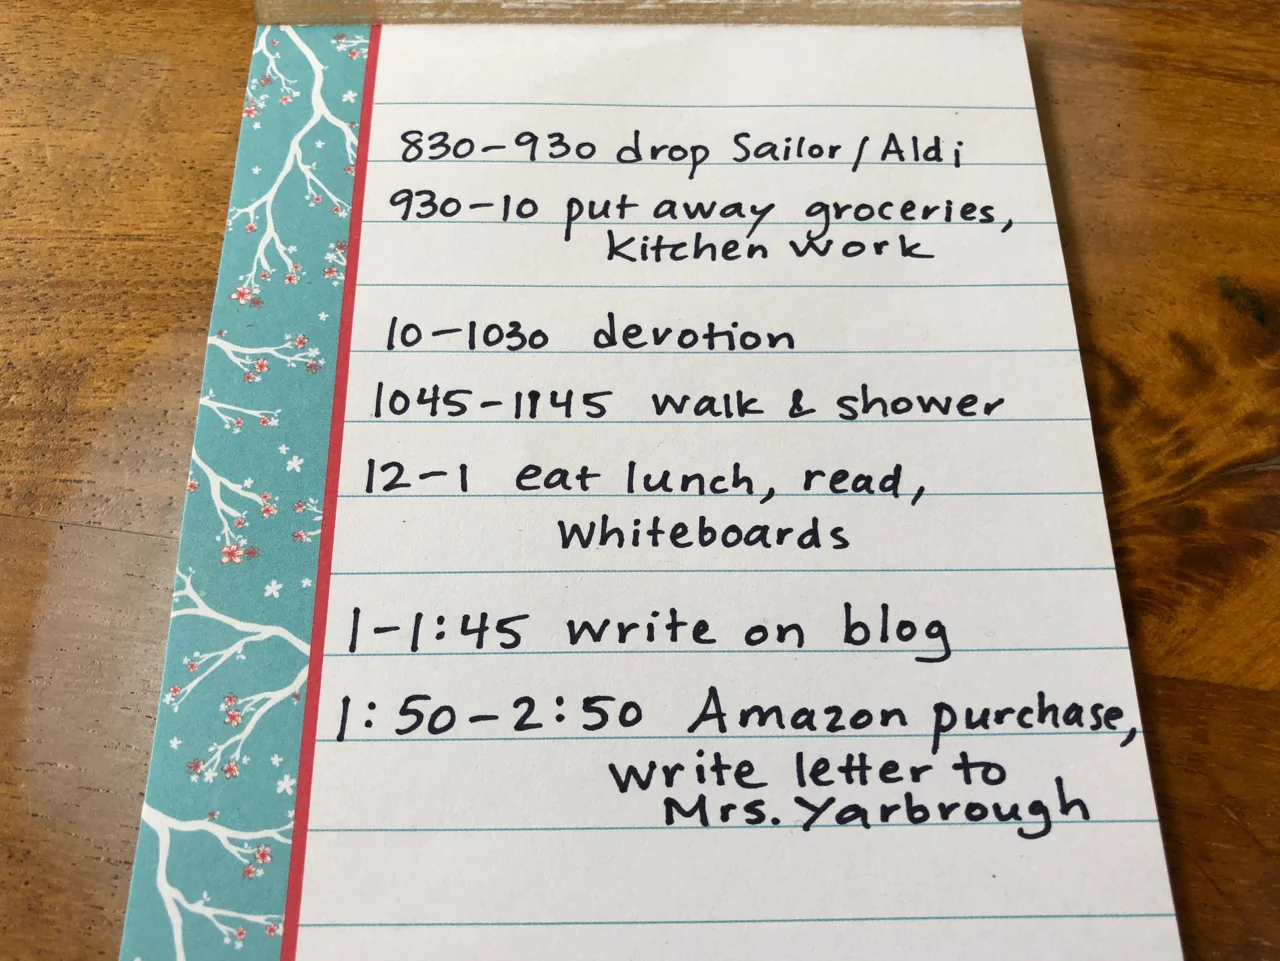 830-930 drop Sailor/Aldi
930-10 put away groceries,
kitchen work
10-1030 devotion
1045-1145 walk & shower
12-1 eat lunch, read,
whiteboards
1-1:45 write on blog
1:50-2:50 Amazon purchase,
write letter to
Mrs. Yarbrough